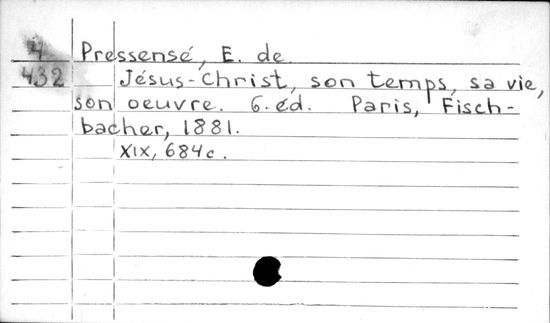 4 Pressensé, E. de
432 Jésus-Christ, son temps, sa vie,
son oeuvre. 6. éd. Paris, Fisch-
bacher, 1881.
XIX, 684c.